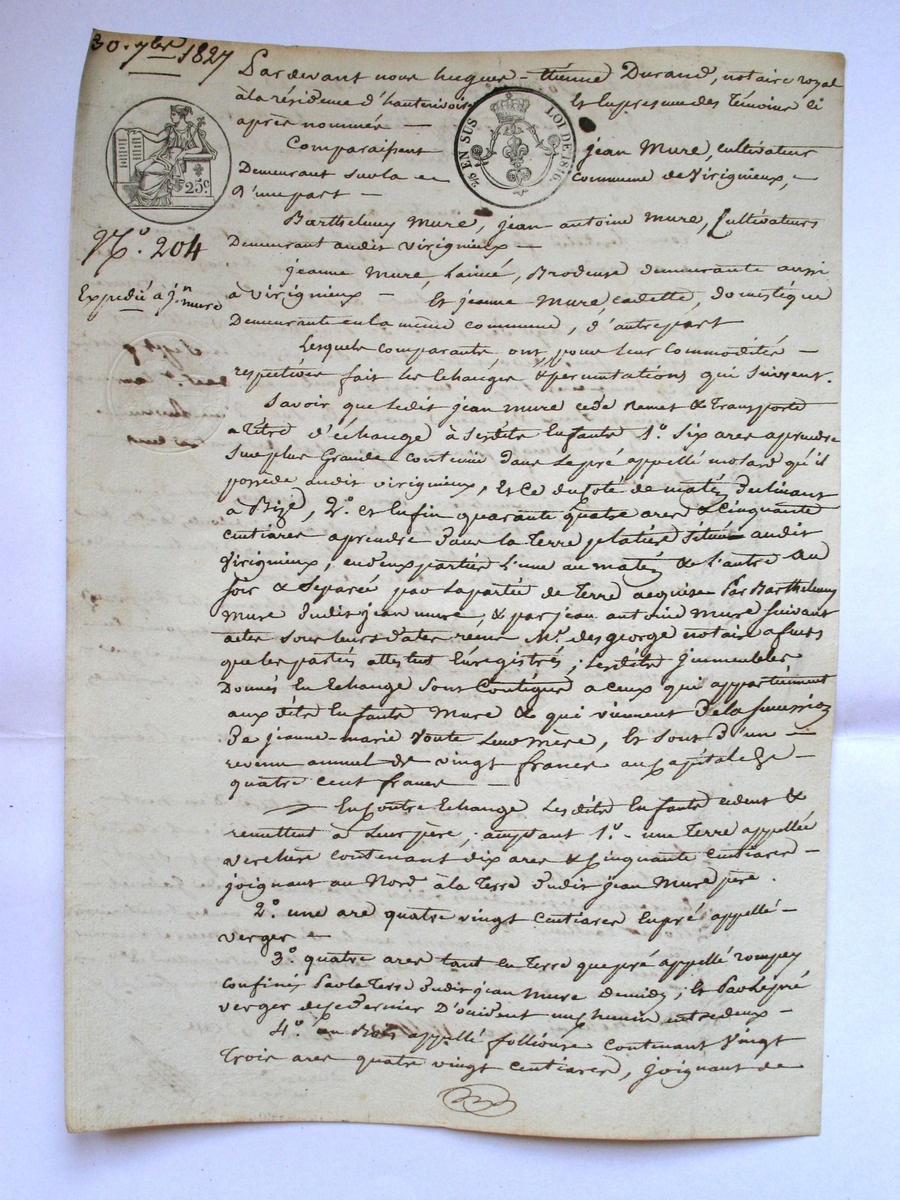 30. 7bre 1827
Pardevant nous hugues-étienne Durand, notaire royal
à la résidence d'hauterivoire Et En presence des Témoins ci
après nommés —
Comparaissent jean Mure, cultivateur
Demeurant sur la commune de Virignieux, —
D'une part —
25c.
25c EN SUS LOI DE 1816.
Barthelemy Mure, jean antoine Mure, Cultivateurs
Demeurant audit virignieux —
N.o 204
jeanne Mure, L'ainée, Brodeuse demeurante aussi
Expedié à j.n mure
à virignieux — Et jeanne Mure cadette, domestique
Demeurante en la même commune, d'autre part
Lesquels comparants, ont, pour leur commodités —
respectives fait les Echanges & permutations qui suivent.
Savoir que ledit jean mure cede Remet & Transporte
a Titre d'échange à Sesdits Enfants 1.o Six ares aprendre
Sur plus Grande contenue dans Le pré appellé molard qu'il
possède audit virignieux, Et Ce du Coté de matin Declinant
à Bize, 2.o et Enfin quarante quatre ares & cinquante
centiares aprendre Dans la Terre platière Située audit
Virignieux, en deux parties L'une au matin & L'autre au
Soir & Separée par La partie de Terre acquise Par Barthelemy
Mure Dudit jean mure, & par jean antoine Mure Suivant
actes Sous leurs dates recus M.e des george notaire a feurs
que les parties attestent Enregistrés; Lesdits Immeubles
Donnés En Echange Sont Contigus a ceux qui appartiennent
aux dits Enfants Mure & qui viennent De la Succession
De jeanne-marie Voute Leur Mère, Et Sont D'un —
revenu annuel de vingt francs au Capital de —
quatre cent francs —
En Contre Echange Lesdits Enfants cedent &
remettent à Leur père, acceptant 1.o une Terre appellée
verchère contenant dix ares & Cinquante centiares —
joignant au Nord à la Terre Dudit jean Mure père.
2.o une are quatre vingt Centiares En pré appellé —
verger —
3.o quatre ares tant En Terre que pré appellé rompey
confinés Par la Terre Dudit jean Mure De midy; Et Par Le pré
verger de ce Dernier D'occident un Chemin entredeux —
4.o un Bois appellé follieuse contenant Vingt
Trois ares quatre vingt Centiares, joignant de